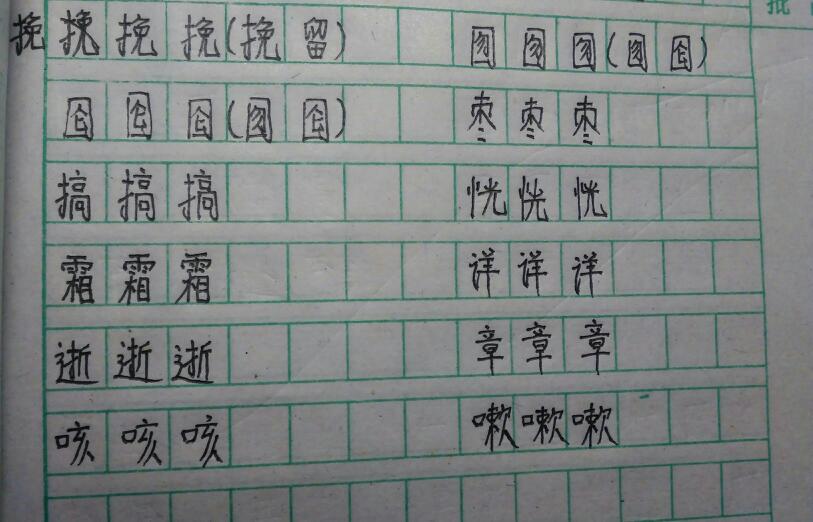 挽挽挽挽(挽留) 囫囫囫(囫囵)
囵囵囵(囫囵) 枣枣枣
搞搞搞 恍恍恍
霜霜霜 详详详
逝逝逝 章章章
咳咳咳 嗽嗽嗽
批